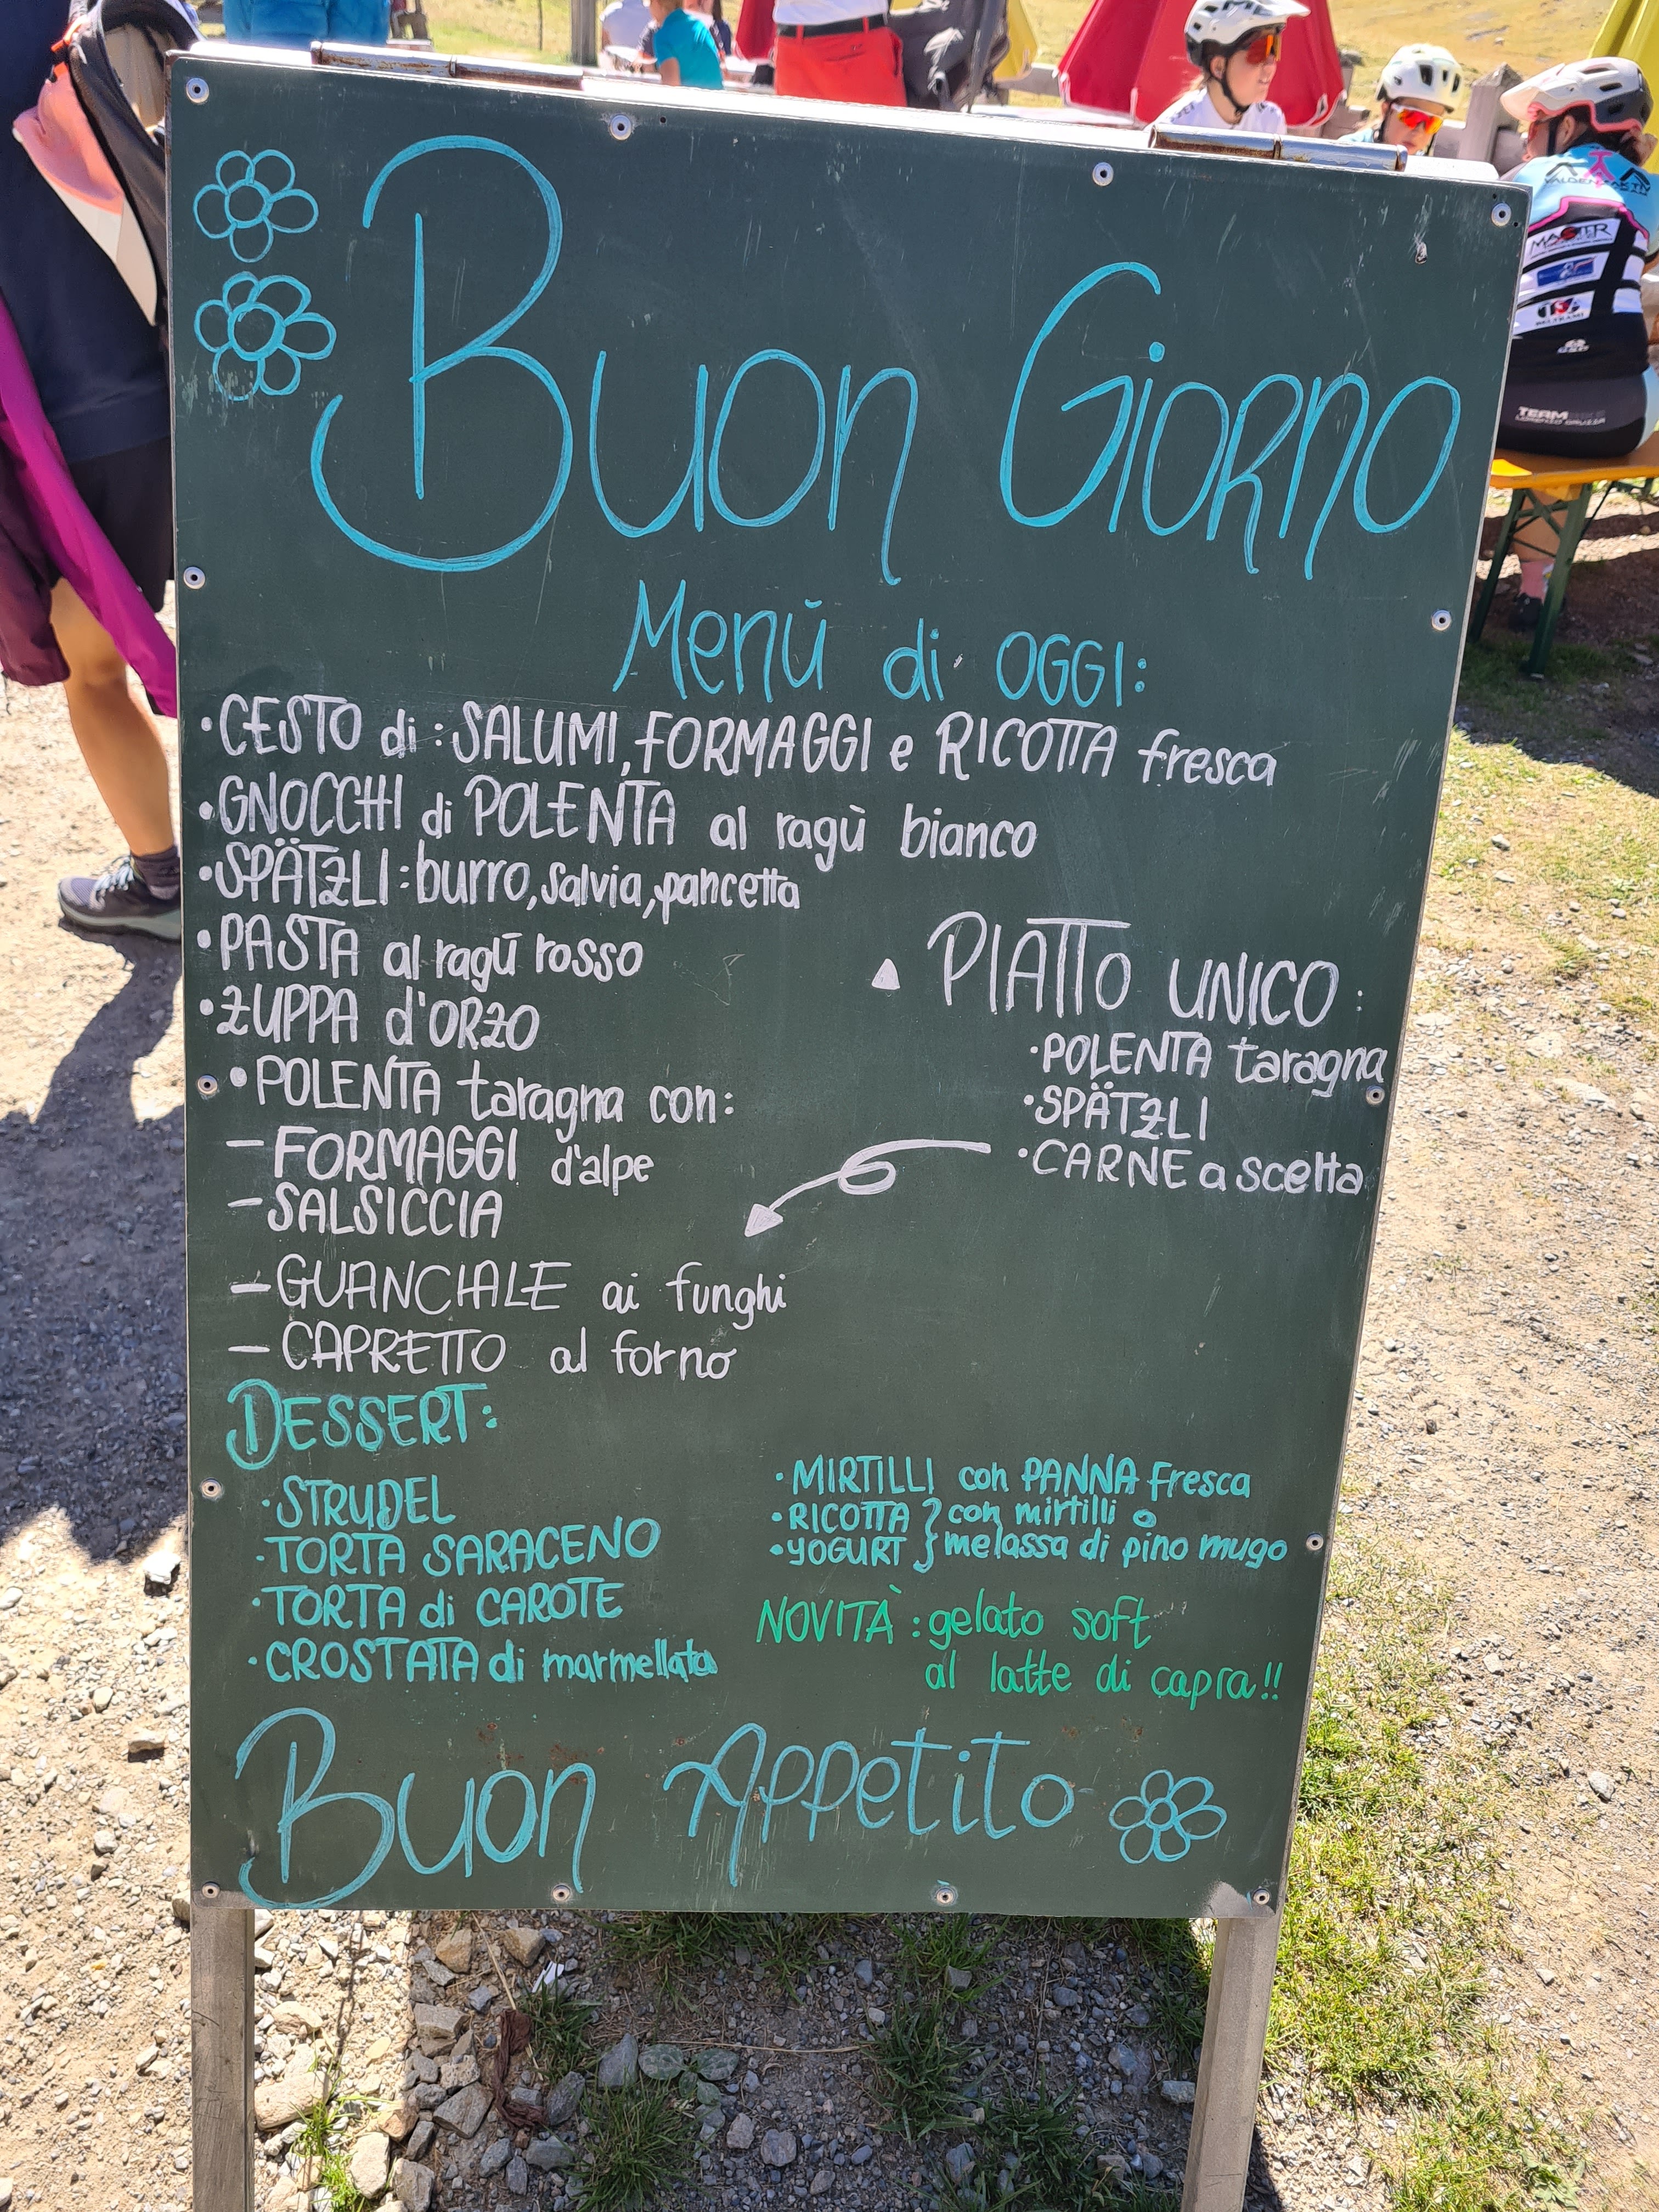 Buon Giorno
Menū di OGGI:
•CESTO di: SALUMI, FORMAGGI e RICOTTA fresca
•GNOCCHI di POLENTA al ragù bianco
•SPÄTZLI: burro, salvia, pancetta
•PASTA al ragū rosso
•ZUPPA d'ORZO
•POLENTA taragna con:
– FORMAGGI d'alpe
– SALSICCIA
– GUANCIALE ai funghi
– CAPRETTO al forno
PIATTO UNICO:
•POLENTA taragna
•SPÄTZLI
•CARNE a scelta
DESSERT:
•STRUDEL
•TORTA SARACENO
•TORTA di CAROTE
•CROSTATA di marmellata
•MIRTILLI con PANNA fresca
•RICOTTA } con mirtilli o
•YOGURT } melassa di pino mugo
NOVITÀ: gelato soft
al latte di capra!!
Buon Appetito
MASTER
BELTRAMI
TEAM